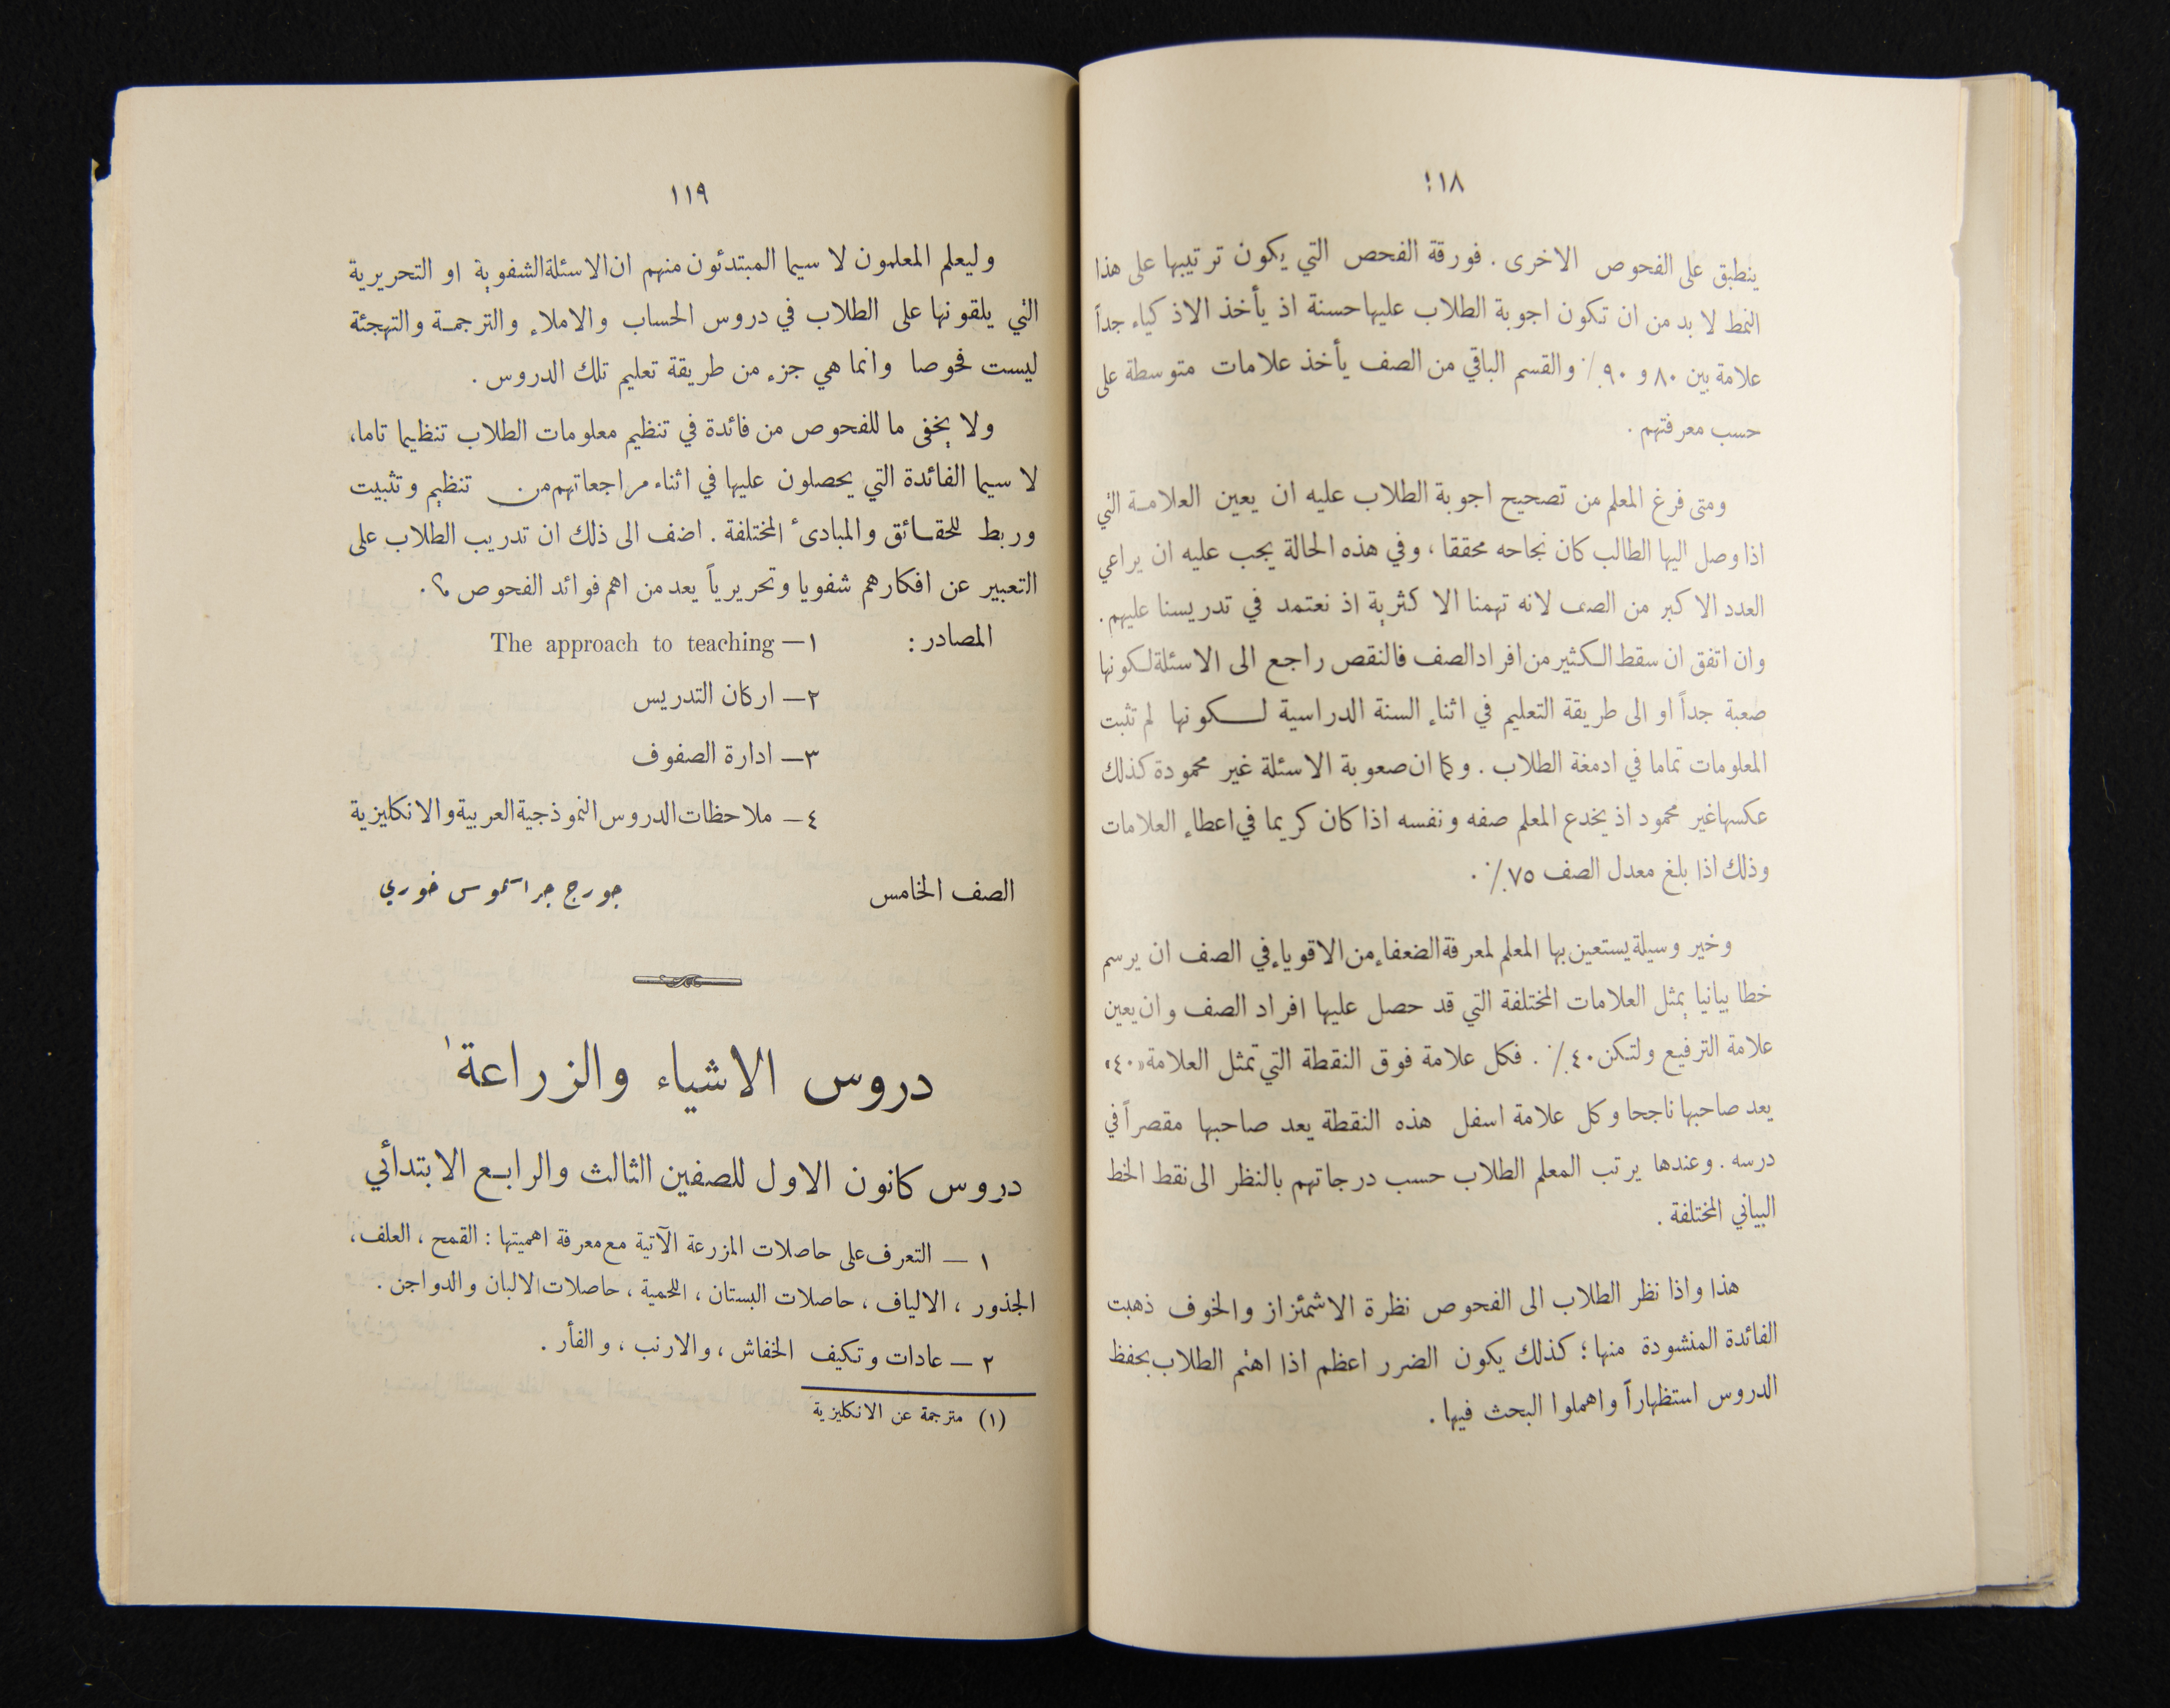 ١١٨
ينطبق على الفحوص الاخرى . فورقة الفحص التي يكون ترتيبها على هذا
النمط لا بد من ان تكون اجوبة الطلاب عليها حسنة اذ يأخذ الاذكياء جداً
علامة بين ٨٠ و ٩٠٪ والقسم الباقي من الصف يأخذ علامات متوسطة على
حسب معرفتهم .
ومتى فرغ المعلم من تصحيح اجوبة الطلاب عليه ان يعين العلامة التي
اذا وصل اليها الطالب كان نجاحه محققا ، وفي هذه الحالة يجب عليه ان يراعي
العدد الاكبر من الصف لانه تهمنا الاكثرية اذ نعتمد في تدريسنا عليهم .
وان اتفق ان سقط الكثير من افراد الصف فالنقص راجع الى الاسئلة لكونها
صعبة جداً او الى طريقة التعليم في اثناء السنة الدراسية لكونها لم تثبت
المعلومات تماما في ادمغة الطلاب . وكما ان صعوبة الاسئلة غير محمودة كذلك
عكسها غير محمود اذ يخدع المعلم صفه ونفسه اذا كان كريما في اعطاء العلامات
وذلك اذا بلغ معدل الصف ٧٥٪ .
وخير وسيلة يستعين بها المعلم لمعرفة الضعفاء من الاقوياء في الصف ان يرسم
خطا بيانيا يمثل العلامات المختلفة التي قد حصل عليها افراد الصف وان يعين
علامة الترفيع ولتكن ٤٠٪ . فكل علامة فوق النقطة التي تمثل العلامة «٤٠»
يعد صاحبها ناجحا وكل علامة اسفل هذه النقطة يعد صاحبها مقصراً في
درسه . وعندها يرتب المعلم الطلاب حسب درجاتهم بالنظر الى نقط الخط
البياني المختلفة .
هذا واذا نظر الطلاب الى الفحوص نظرة الاشمئزاز والخوف ذهبت
الفائدة المنشودة منها ؛ كذلك يكون الضرر اعظم اذا اهتم الطلاب بحفظ
الدروس استظهاراً واهملوا البحث فيها .
١١٩
وليعلم المعلمون لا سيما المبتدئون منهم ان الاسئلة الشفوية او التحريرية
التي يلقونها على الطلاب في دروس الحساب والاملاء والترجمة والتهجئة
ليست فحوصا وانما هي جزء من طريقة تعليم تلك الدروس .
ولا يخفى ما للفحوص من فائدة في تنظيم معلومات الطلاب تنظيما تاما ،
لا سيما الفائدة التي يحصلون عليها في اثناء مراجعاتهم من تنظيم وتثبيت
وربط للحقائق والمبادىء المختلفة . اضف الى ذلك ان تدريب الطلاب على
التعبير عن افكارهم شفويا وتحريرياً يعد من اهم فوائد الفحوص .
المصادر : ١ – The approach to teaching
٢ – اركان التدريس
٣ – ادارة الصفوف
٤ – ملاحظات الدروس النموذجية العربية والانكليزية
الصف الخامس جورج جراسموس خوري
دروس الاشياء والزراعة ١
دروس كانون الاول للصفين الثالث والرابع الابتدائي
١ – التعرف على حاصلات المزرعة الآتية مع معرفة اهميتها : القمح ، العلف ،
الجذور ، الالياف ، حاصلات البستان ، اللحمية ، حاصلات الالبان والدواجن .
٢ – عادات وتكيف الخفاش ، والارنب ، والفأر .
(١) مترجمة عن الانكليزية